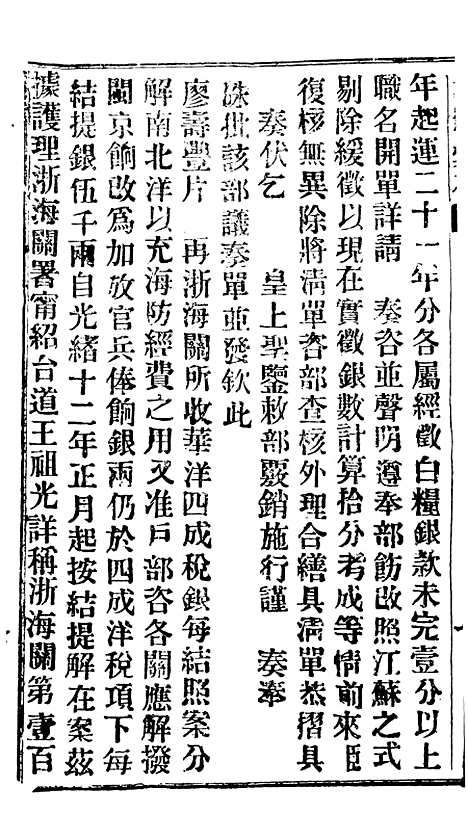 年起運二十一年分各屬經徵白糧銀款未完壹分以上
職名開單詳請　奏咨並聲明遵奉部飭改照江蘇之式
剔除緩徵以現在實徵銀數計算拾分考成等情前來臣
復核無異除將清單咨部查核外理合繕具清單恭摺具
奏伏乞　皇上聖鑒敕部覈銷施行謹　奏奉
硃批該部議奏單並發欽此
廖壽豐片　再浙海關所收華洋四成稅銀每結照案分
解南北洋以充海防經費之用又准戶部咨各關應解撥
閩京餉改爲加放官兵俸餉銀兩仍於四成洋稅項下每
結提銀伍千兩自光緒十二年正月起按結提解在案茲
據護理浙海關署甯紹台道王祖光詳稱浙海關第壹百